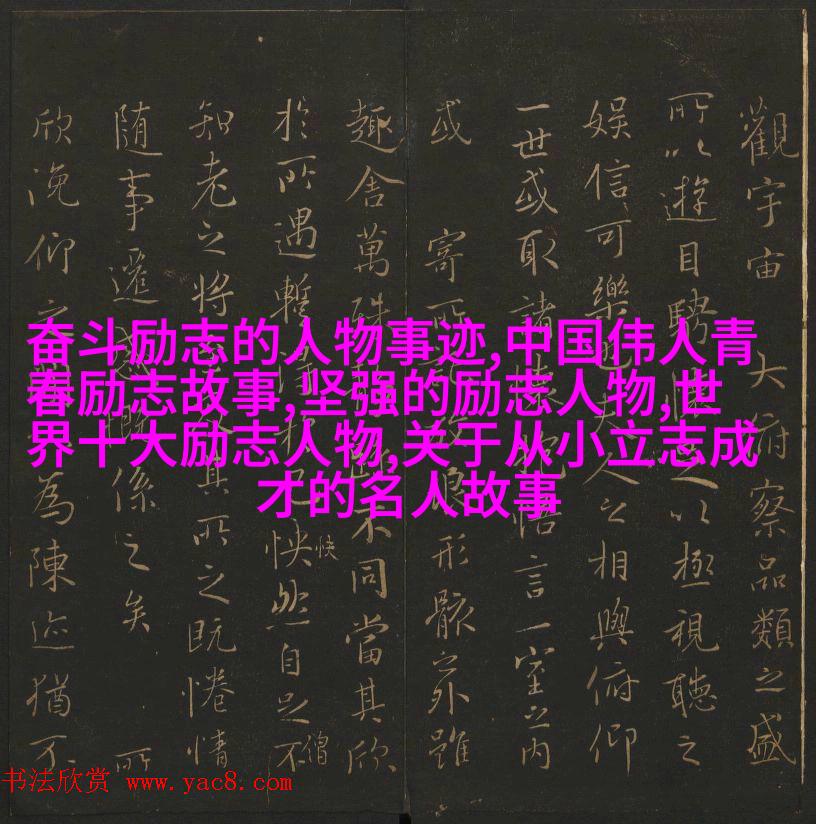 奋斗励志的人物事迹,中国伟人青
春励志故事,坚强的励志人物,世
界十大励志人物,关于从小立志成
才的名人故事
觀宇宙 大府察品類之盛
所以遊目騁以極視聽之
娛信可樂也夫人之相與俯仰
一世或取諸悟言一室之內
或 寄所浪形骸之外雖
趣舍萬殊不同當其欣
於所遇暫得己怏然自足不
快
僧
知老之將其所之既惓情
隨事遷係之矣 所
欣俛仰之為陳迹猶不
书法欣赏 www.yac8.com